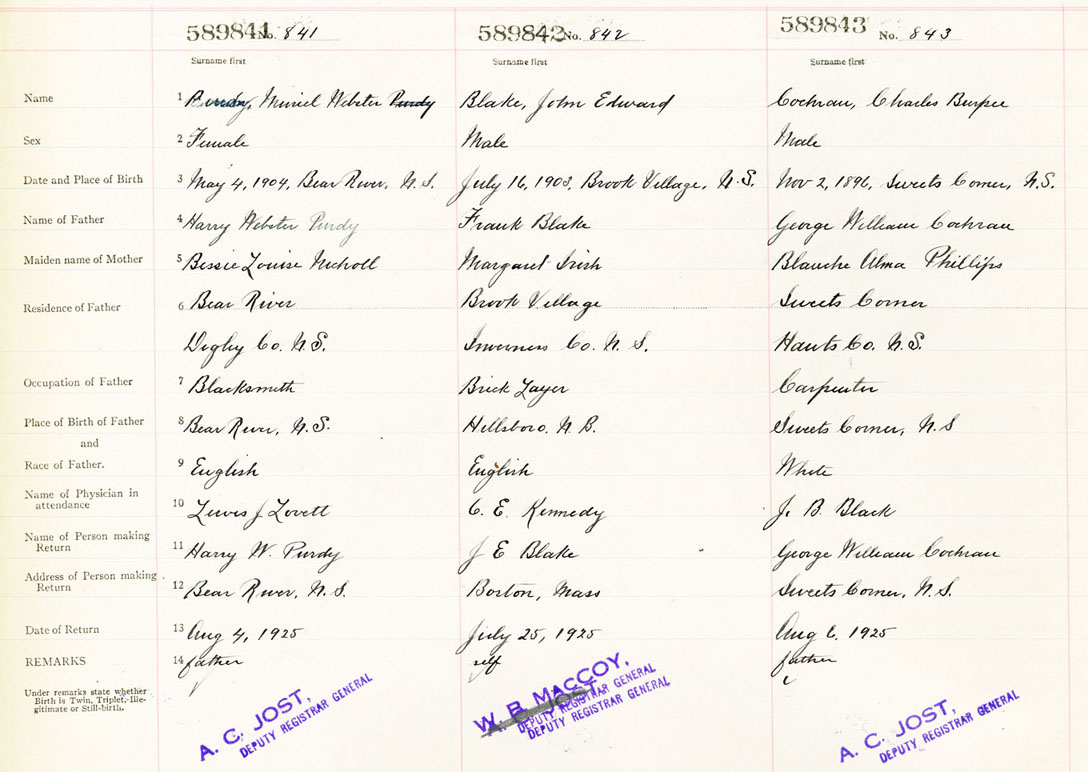 589841 No. 841 589842 No. 842 589843 No. 843
Surname first Surname first Surname first
Name 1 Purdy, Muriel Webster Purdy Blake, John Edward Cochran, Charles Burpee
Sex 2 Female Male Male
Date and Place of Birth 3 May 4, 1904, Bear River, N.S. July 16, 1903, Brook Village, N.S. Nov 2, 1896, Sweets Corner, N.S.
Name of Father 4 Harry Webster Purdy Frank Blake George William Cochran
Maiden name of Mother 5 Bessie Louise Nicholl Margaret Irish Blanche Alma Phillips
Residence of Father 6 Bear River Brook Village Sweets Corner
Digby Co. N.S. Inverness Co. N.S. Hants Co. N.S.
Occupation of Father 7 Blacksmith Brick Layer Carpenter
Place of Birth of Father 8 Bear River, N.S. Hillsboro. N.B. Sweets Corner, N.S
and
Race of Father. 9 English English White
Name of Physician in
attendance 10 Lewis J Lovett C. E. Kennedy J. B. Black
Name of Person making
Return 11 Harry W. Purdy J E Blake George William Cochran
Address of Person making
Return 12 Bear River, N.S. Boston, Mass Sweets Corner, N.S.
Date of Return 13 Aug 4, 1925 July 25, 1925 Aug 6. 1925
REMARKS 14 father self father
Under remarks state whether
Birth is Twin, Triplet, Ille-
gitimate or Still-birth.
A. C. JOST, W. B. MACCOY, A. C. JOST,
DEPUTY REGISTRAR GENERAL DEPUTY REGISTRAR GENERAL DEPUTY REGISTRAR GENERAL
DEPUTY REGISTRAR GENERAL